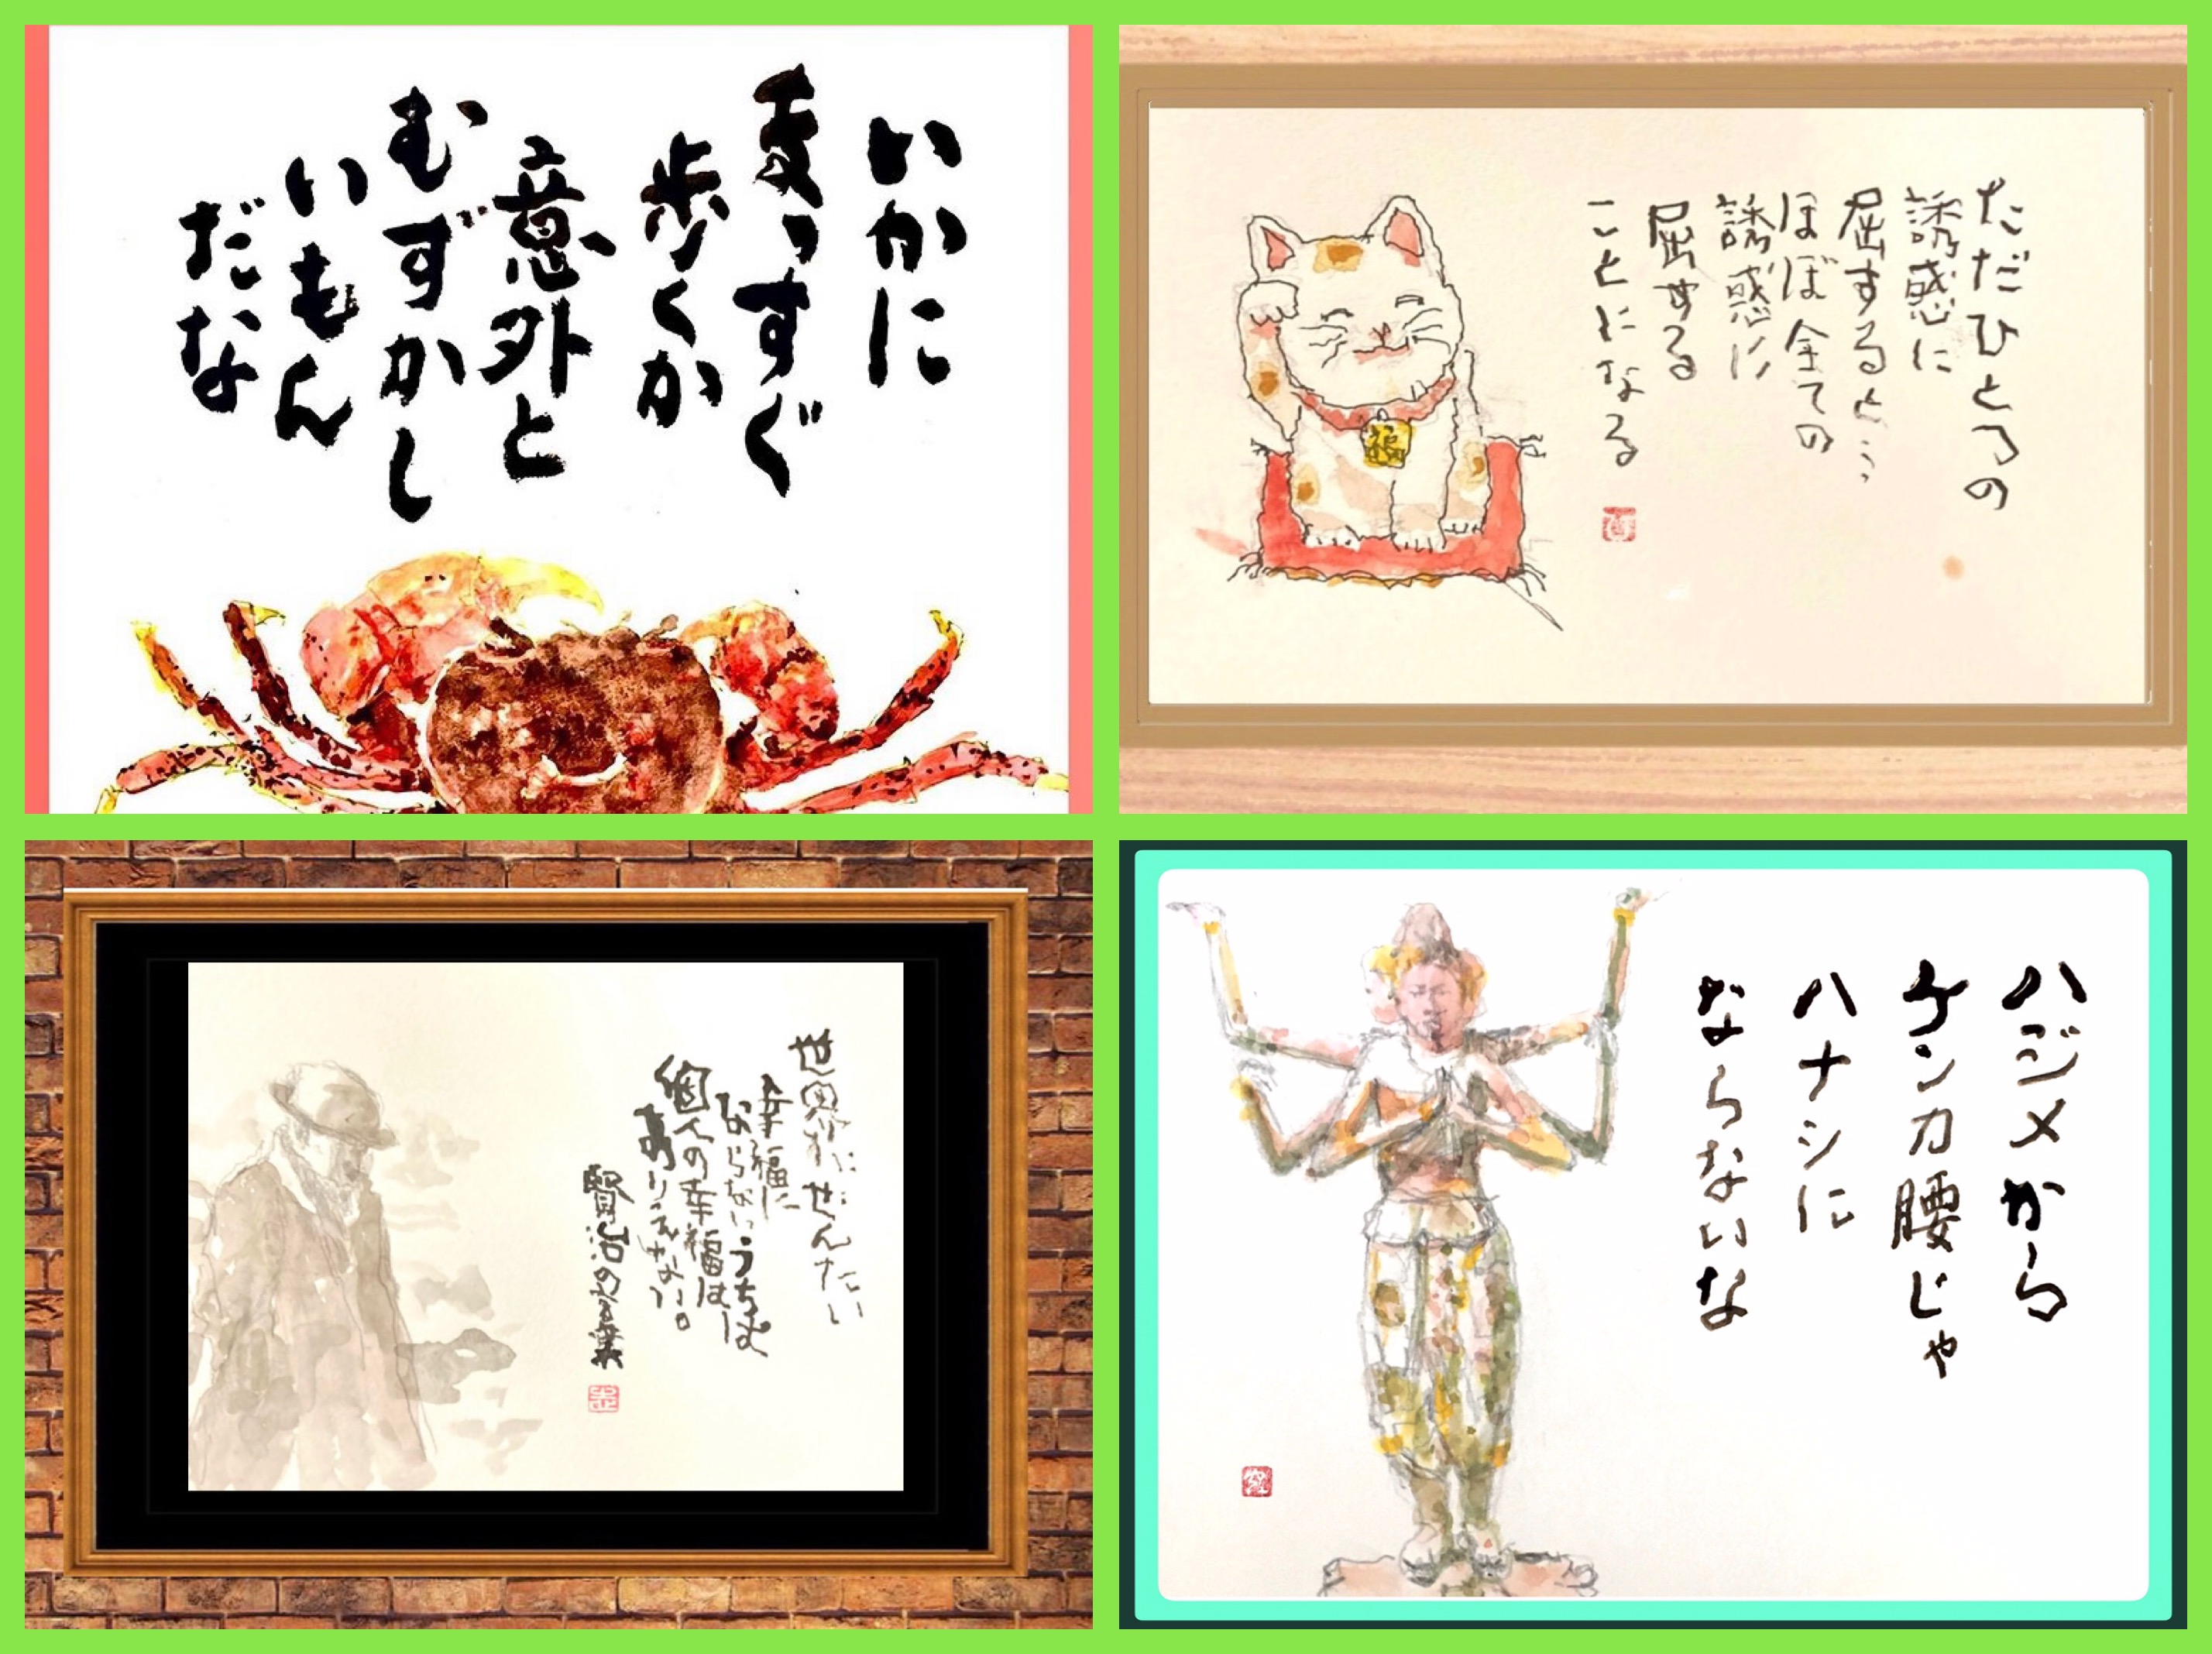 いかに
まっすぐ
歩くか
意外と
むずかし
いもん
だな
ただひとつの
誘惑に
屈すると…
ほぼ全ての
誘惑に
屈する
ことになる
福
世界がぜんたい
幸福に
ならないうちは
個人の幸福は
ありえない。
賢治の言葉
ハジメから
ケンカ腰じゃ
ハナシに
ならないな